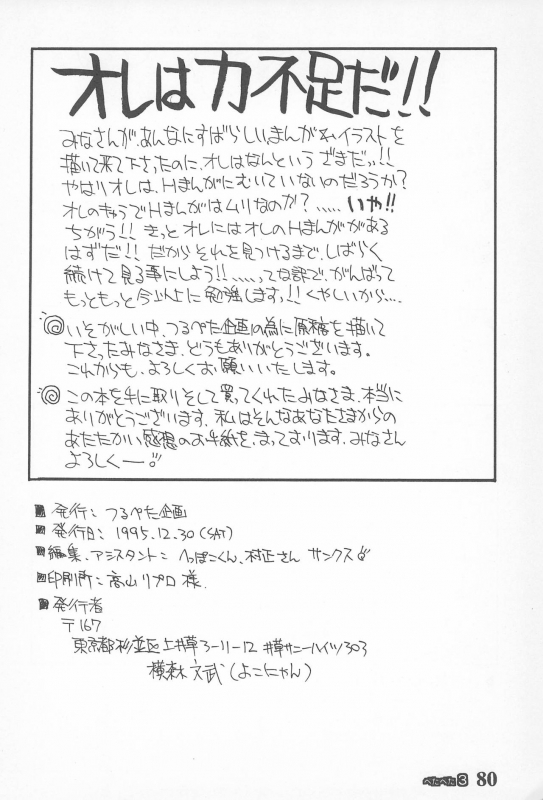 オレは力不足だ!!
みなさんが、あんなにすばらしいまんがやイラストを
描いて来て下さったのに、オレはなんというざまだッ!!
やはりオレは、Hまんがにむいていないのだろうか?
オレのキャラでHまんがはムリなのか?.....いや!!
ちがう!!きっとオレにはオレのHまんががある
はずだ!!だからそれを見つけるまで、しばらく
続けて見る事にしよう!!.....ってな訳で、がんばって
もっともっと今以上に勉強します!!くやしいから....
いそがしい中、つるぺた企画の為に原稿を描いて
下さったみなさま、どうもありがとうございます。
これからも、よろしくお願いいたします。
この本を手に取りそして買ってくれたみなさま、本当に
ありがとうございます、私はそんなあなたさまからの
あたたかい感想のお手紙を、まっております、みなさん
よろしくー。
発行:つるぺた企画
発行日:1995.12.30(SAT)
編集、アシスタント:へっぽこくん、村正さん サンクス
印刷所:高山リプロ様.
発行者
〒167
東京都杉並区上井草3-11-12 井草サニーハイツ303
横森文武(よこにゃん)
ぺたぺた3 80